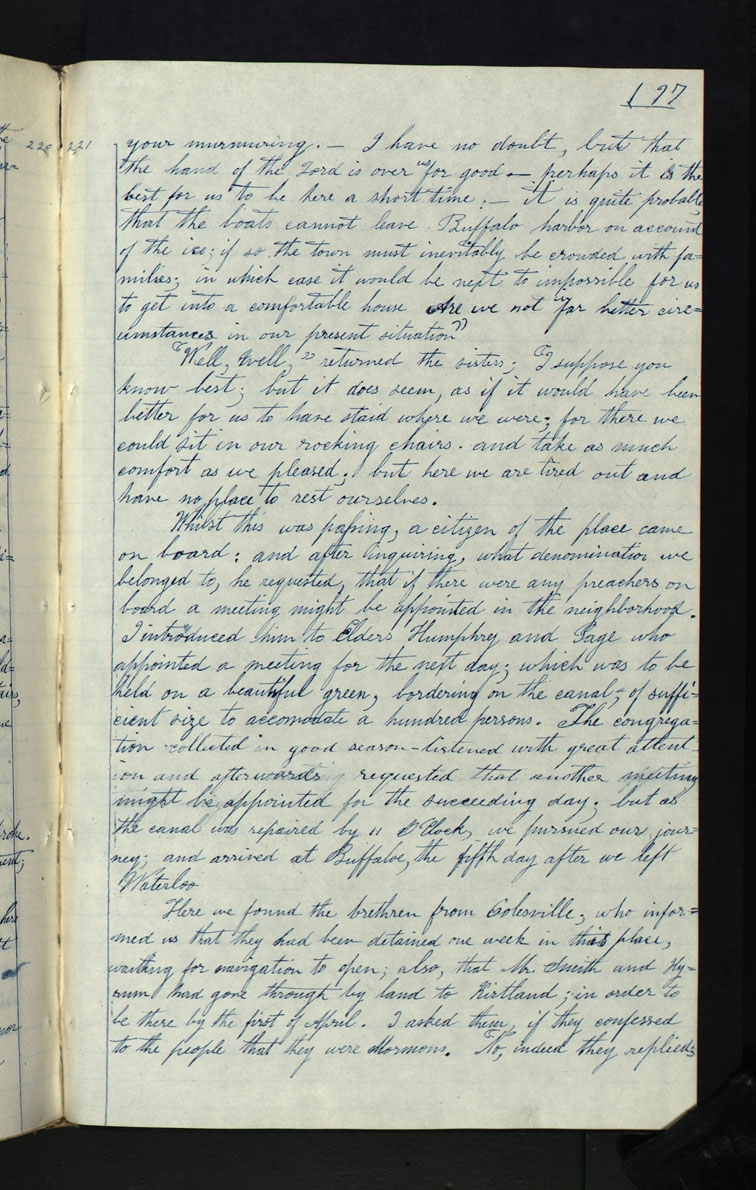 197
220 221
your murmuring. — I have no doubt, but that
the hand of the Lord is over us for good — perhaps it is the
best for us to be here a short time; — it is quite probable
that the boats cannot leave Buffalo harbor on account
of the ice; if so, the town must inevitably be crowded with fa=
milies; in which case it would be next to impossible for us
to get into a comfortable house Are we not in far better circ=
umstances in our present situation"
"Well, well," returned the sisters; "I suppose you
know best; but it does seem, as if it would have been
better for us to have staid where we were; for there we
could sit in our rocking chairs. and take as much
comfort as we pleased; but here we are tired out and
have no place to rest ourselves.
Whilst this was passing, a citizen of the place came
on board: and after inquiring, what denomination we
belonged to, he requested, that if there were any preachers on
board a meeting might be appointed in the neighborhood.
I introduced him to Elders Humphrey and Page who
appointed a meeting for the next day; which was to be
held on a beautiful green, bordering on the canal, of suffi=
cient size to accomodate a hundred persons. The congrega=
tion collected in good season—listened with great attent
ion and afterwards requested that another meeting
might be appointed for the succeeding day; but as
the canal was repaired by 11 O'Clock, we pursued our jour=
ney; and arrived at Buffaloe, the fifth day after we left
Waterloo
Here we found the brethren from Colesville, who infor=
med us that they had been detained one week in this place,
waiting for navigation to open; also, that Mr. Smith and Hy=
rum had gone through by land to Kirtland; in order to
be there by the first of April. I asked them, if they confessed
to the people that they were Mormons. "No, indeed they replied